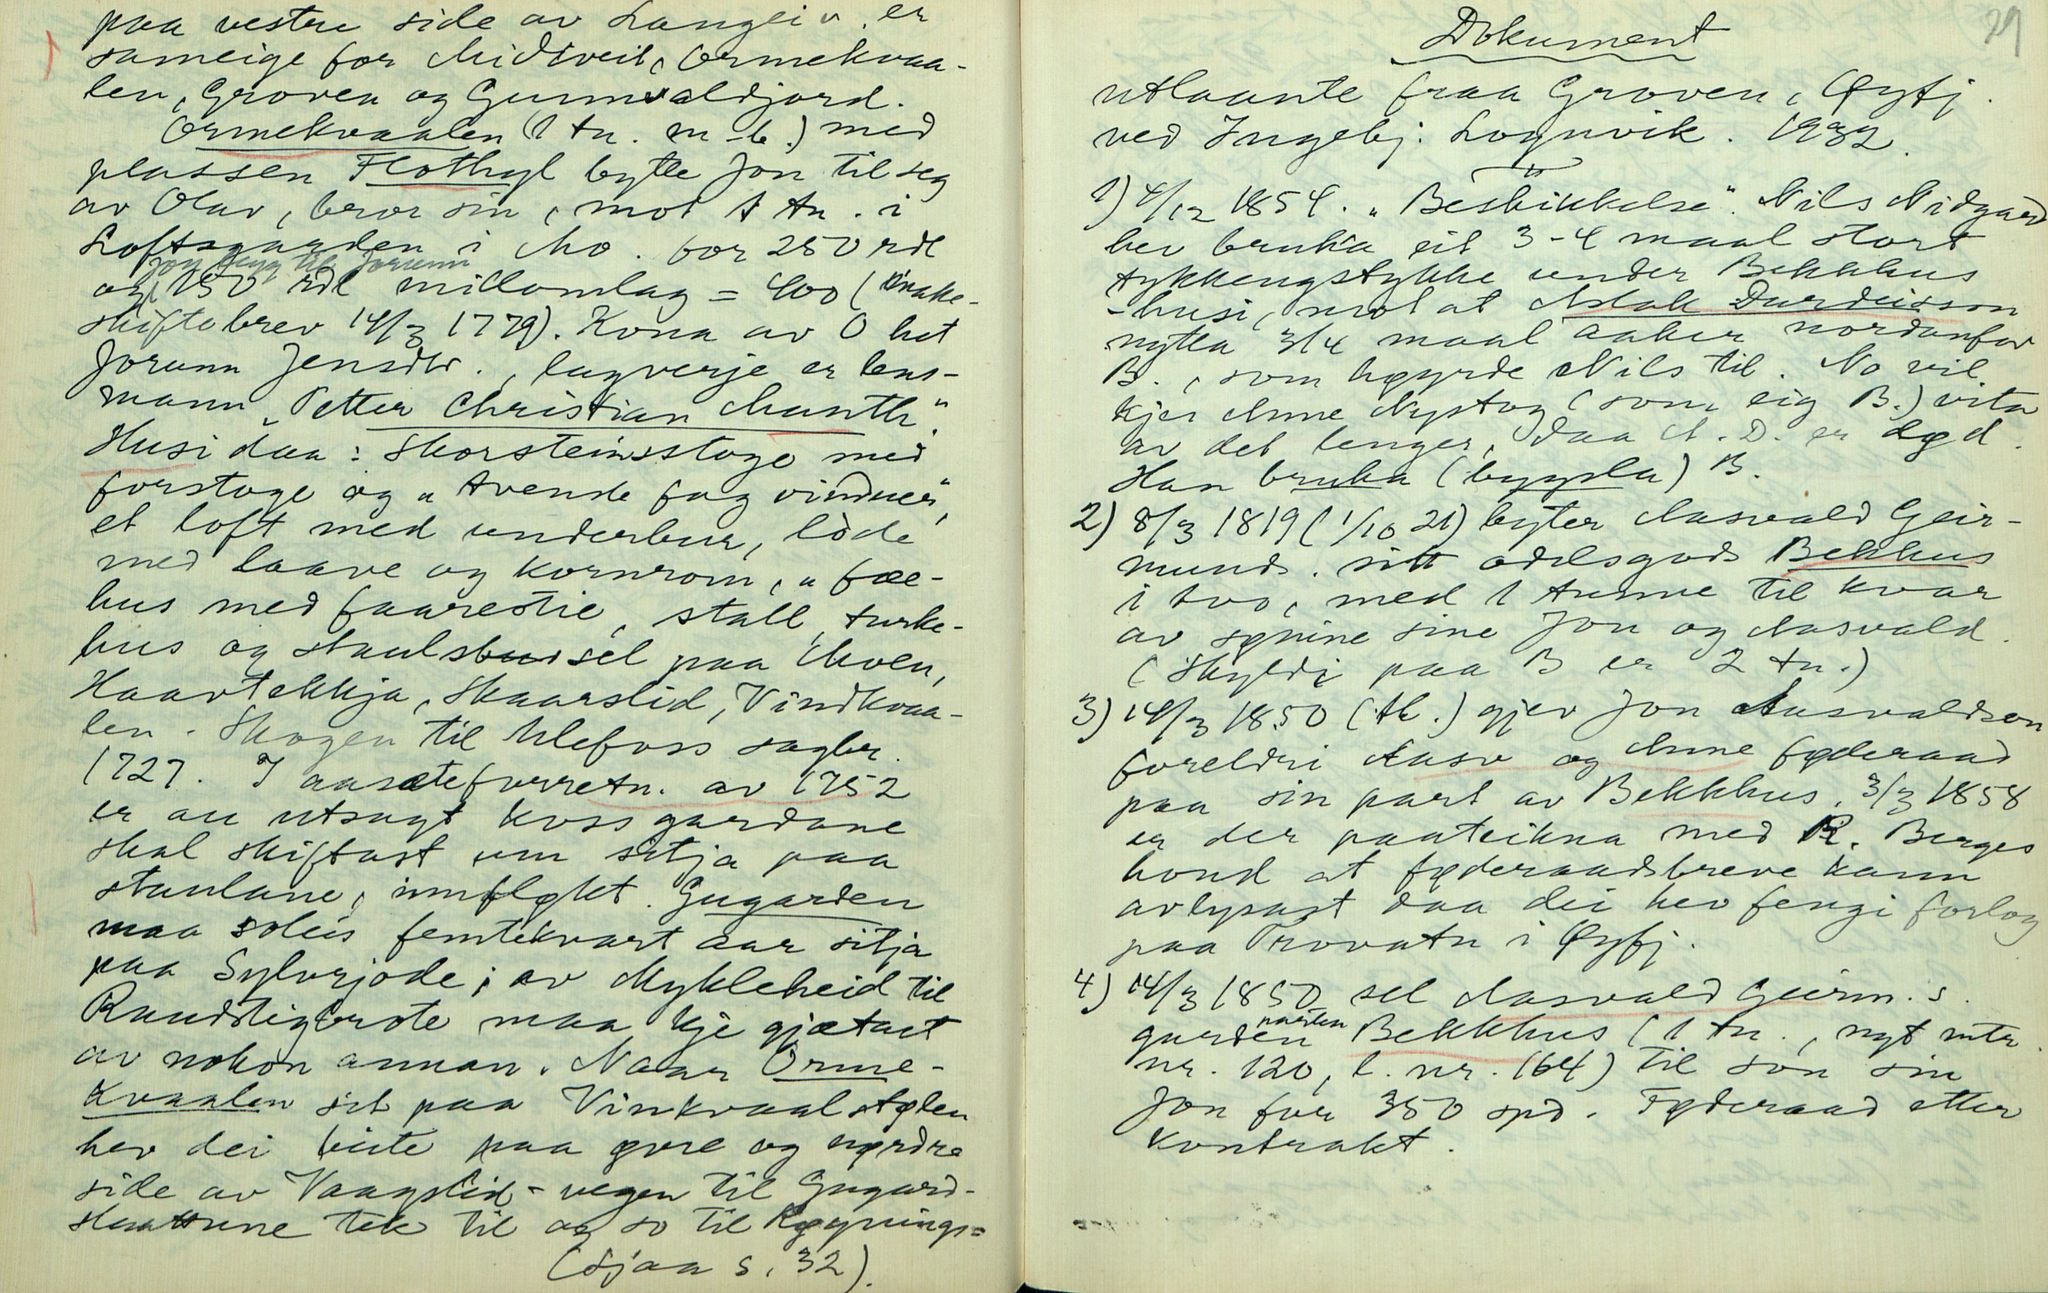 paa vestre side av Langeiv. er
sameige for Midtveit, Ormekvaa-
len, Groven og Gunnvaldjord.
Ormekvaalen (1 tn. m-b.) med
plassen Flothyl bytte Jon til seg
av Olav, bror sin, mot 1 tn. i
Loftsgarden i Mo. for 250 rdl
Jon til Jorunn
og 150 rdl millomlag = 400 (Make-
skiftebrev 14/3 1779). Kona av O het
Jorunn Jensdtr., lagverje er lens-
mann "Petter Christian Munth".
Husi daa: Skorsteinsstoge med
forstoge og "tvende fag vinduer",
et loft med underbur, løde
med laave og kornrom, "fæ-
hus med faarestie, stall, turke-
hus og staulssel paa Moen,
Haavtekkja, Skaarslid, Vindkvaa-
len. Skogen til Ulefoss sagbr.
1727. I aasæteforretn. av 1752
er au utsagt koss gardane
skal skiftast um sitja paa
staulane, innfløkt. Gugarden
maa soleis femtekvart aar sitja
paa Sylvrjode; av Mykleheid til
Raudstigbrote maa kje gjætast
av nokon annan. Naar Orme-
kvaalen sit paa Vinkvaalstølen
hev dei beite paa øvre og nørdre
side av Vaagslid-vegen til Gugard-
skattune tek til og so til Køyrings-
(Sjaa s. 32).
29
Dokument
utlaante fraa Groven, Øyfj.
ved Ingebj. Lognvik. 1932.
1) 4/12 1854. "Beskikkelse". Nils Nidgard
hev bruka eit 3-4 maal stort
tykkengstykke under Bekkhus
-husi, mot at Aslak Durdeisson
nytta 3/4 maal aaker nordanfor
B., som høyrde Nils til. No vil
kje Anne Nystog (som eig B.) vita
av det lenger, daa A. D. er død.
Han bruka (bygsla) B.
2) 8/3 1819 (1/10 21) byter Aasvald Geir-
munds. sitt odelsgods Bekkhus
i tvo, med 1 tunne til kvar
av sønine sine Jon og Aasvald.
(Skyldi paa B er 2 tn.)
3) 14/3 1850 (tl.) gjev Jon Aasvaldson
foreldri Aasv og Anne føderaad
paa sin part av Bekkhus. 3/3 1858
er der paateikna med R. Berges
hond at føderaadsbreve kann
avlysast daa dei hev fengi forlog
paa Trovatn i Øyfj.
4) 14/3 1850 sel Aasvald Geirm. s.
parten
garden Bekkhus (1 tn., nyt mtr.
nr. 120, l. nr. 164) til son sin
Jon for 350 spd. Føderaad etter
kontrakt.